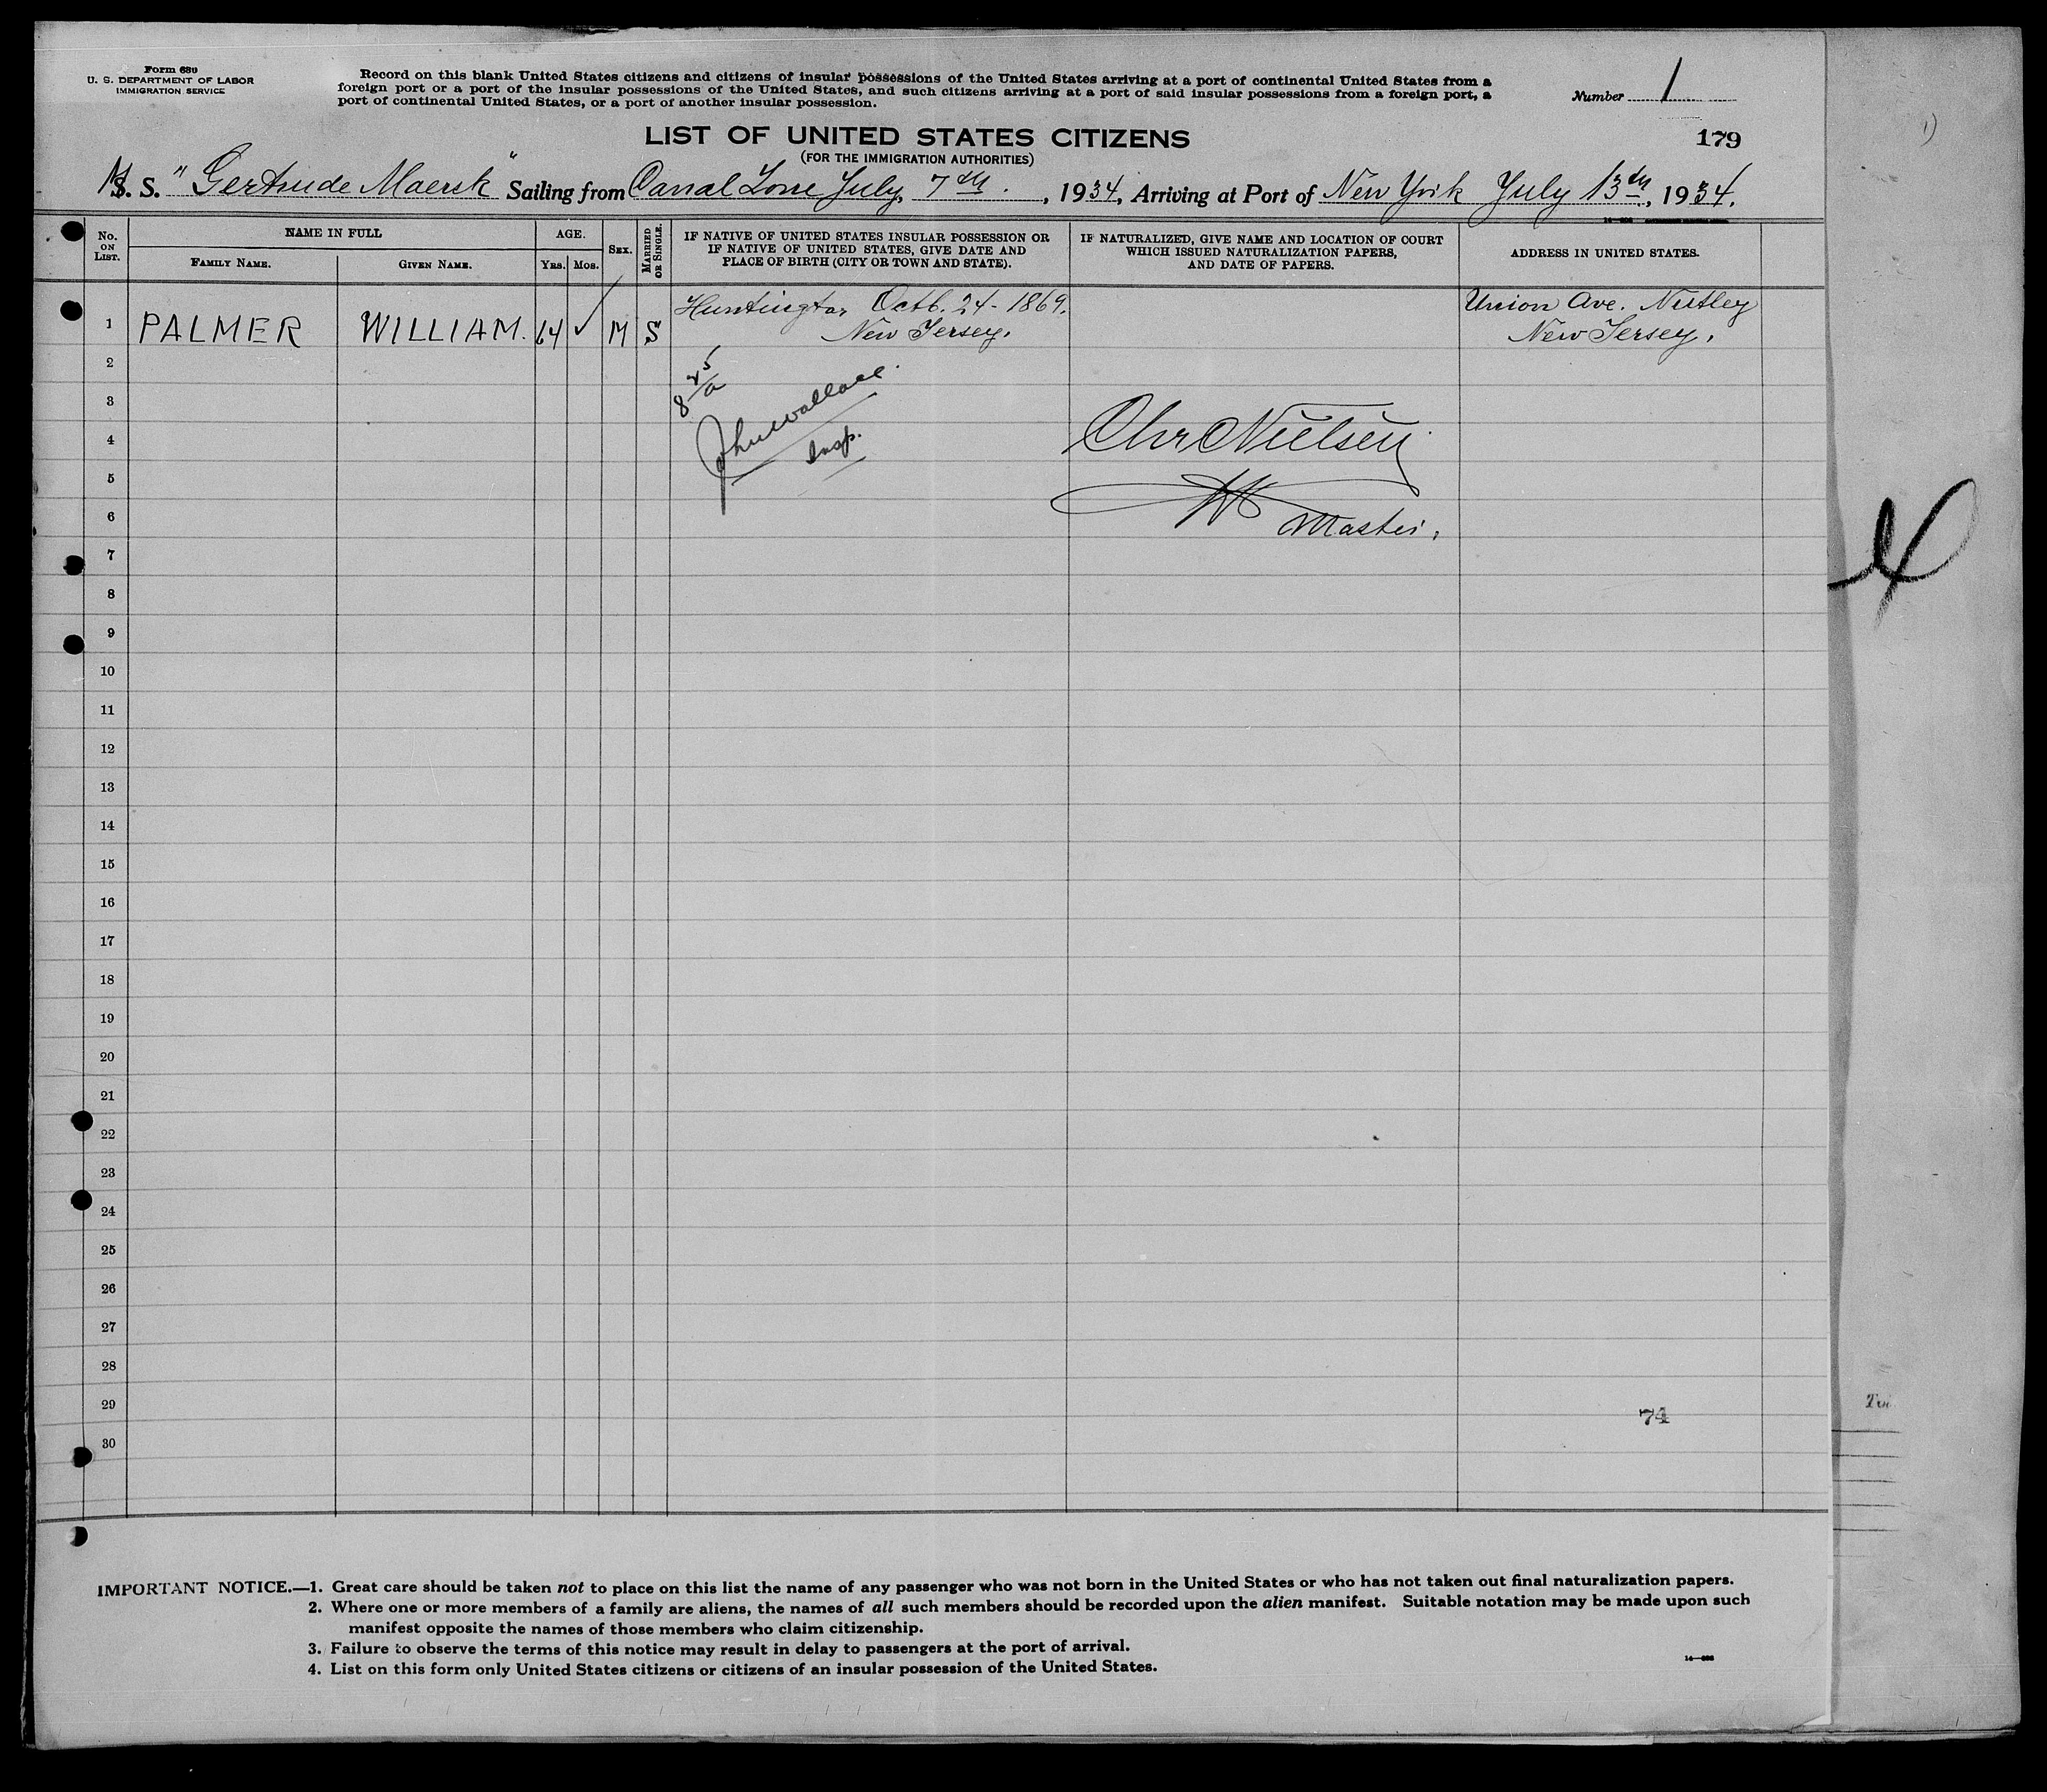 Form 630
U. S. DEPARTMENT OF LABOR
IMMIGRATION SERVICE
Record on this blank United States citizens and citizens of insular possessions of the United States arriving at a port of continental United States from a
foreign port or a port of the insular possessions of the United States, and such citizens arriving at a port of said insular possessions from a foreign port, a
port of continental United States, or a port of another insular possession.
Number 1
179
LIST OF UNITED STATES CITIZENS
(FOR THE IMMIGRATION AUTHORITIES)
M. S. "Gertrude Maersk" Sailing from Canal Zone July, 7th. , 1934, Arriving at Port of New York July 13th, 1934.
No. ON LIST.
NAME IN FULL
FAMILY NAME.
GIVEN NAME.
AGE.
YRS.
MOS.
SEX.
MARRIED OR SINGLE.
IF NATIVE OF UNITED STATES INSULAR POSSESSION OR
IF NATIVE OF UNITED STATES, GIVE DATE AND
PLACE OF BIRTH (CITY OR TOWN AND STATE).
IF NATURALIZED, GIVE NAME AND LOCATION OF COURT
WHICH ISSUED NATURALIZATION PAPERS,
AND DATE OF PAPERS.
ADDRESS IN UNITED STATES.
Huntington Octb. 24 - 1869.
Union Ave. Nutley
1 PALMER WILLIAM. 64 ✓ M S New Jersey. New Jersey.
2
8 25/a
3
John Wallace
4
Insp.
Chr Nielsen
5
6
Master.
7
8
9
10
11
12
13
14
15
16
17
18
19
20
21
22
23
24
25
26
27
28
29
74
30
IMPORTANT NOTICE.—1. Great care should be taken not to place on this list the name of any passenger who was not born in the United States or who has not taken out final naturalization papers.
2. Where one or more members of a family are aliens, the names of all such members should be recorded upon the alien manifest. Suitable notation may be made upon such
manifest opposite the names of those members who claim citizenship.
3. Failure to observe the terms of this notice may result in delay to passengers at the port of arrival.
4. List on this form only United States citizens or citizens of an insular possession of the United States.